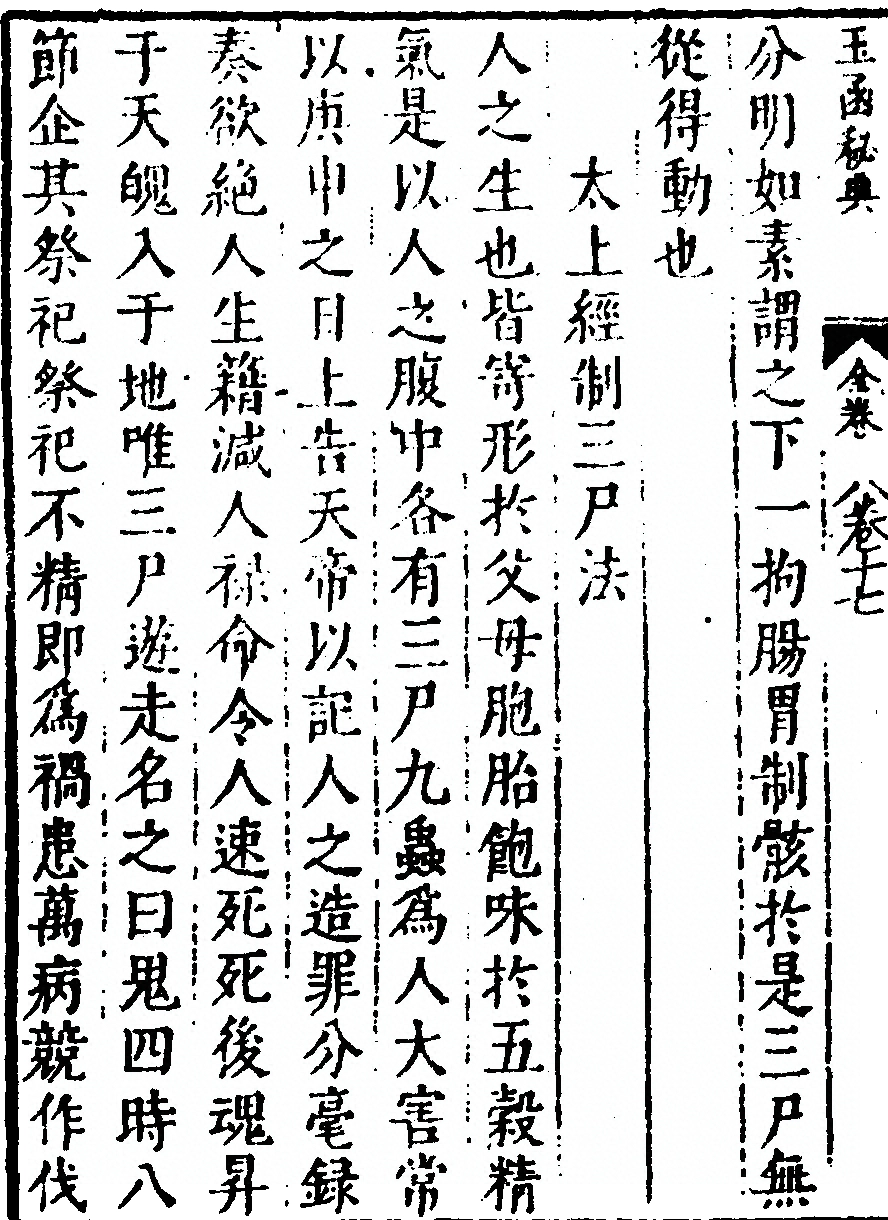 玉函秘典
全卷
八卷十七
分明如素謂之下一拘腸胃制骸於是三尸無
從得動也
太上經制三尸法
人之生也皆寄形於父母胞胎飽味於五穀精
氣是以人之腹中各有三尸九蟲爲人大害常
以庚申之日上告天帝以記人之造罪分毫録
奏欲絶人生籍減人禄命令人速死死後魂昇
于天魄入于地唯三尸遊走名之曰鬼四時八
節企其祭祀祭祀不精即爲禍患萬病競作伐